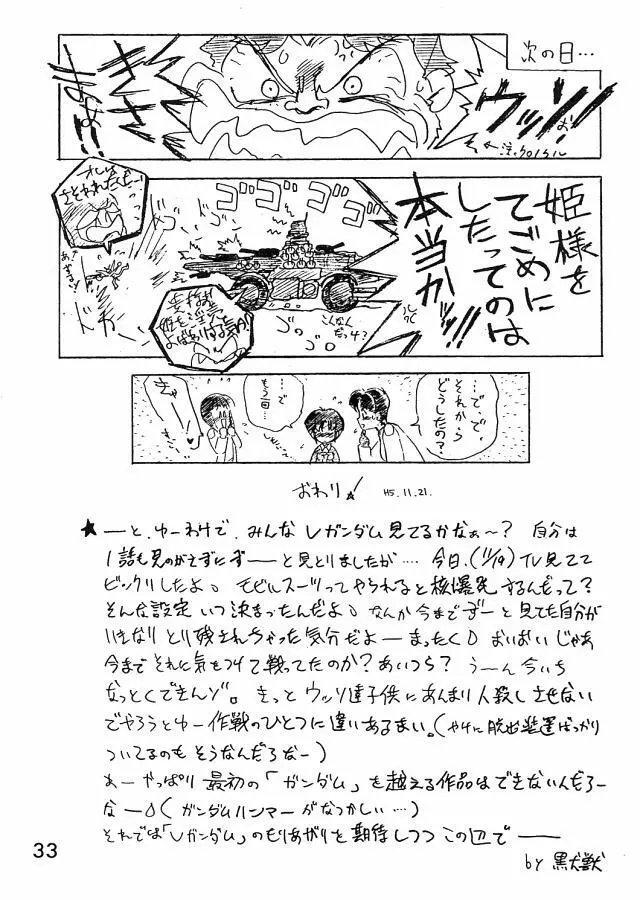 次の日…
ウッソ!!
おぉ
まぁきぃ
さぁまぁ
ぉ!!
←注.クロノクル
姫様を
てごめに
したってのは
本当かッ!!
ゴゴゴゴ
オレは
さそわれたんだー!
ドカーン
ゴロゴロ
こんなん
だっけ?
…で、で、
それから
どうしたの?
…で
もう一回…
きゃー!
おわり! H5.11.21.
★ーと、ゆーわけで、みんなVガンダム見てるかなぁ〜? 自分は
1話も見のがさずにずーーと見とりましたが…. 今日、(11/19)TV見てて
ビックリしたよ。モビルスーツってやられると核爆発するんだって?
そんな設定いつ決まったんだよ。なんか今までずーと見てた自分が
いきなりとり残されちゃった気分だよーまったく。おいおいじゃあ
今までそれに気をつけて戦ってたのか?あいつら? うーん今いち
なっとくできんゾ。きっとウッソ達子供にあんまり人殺しさせない
でやろうとゆー作戦のひとつに違いあるまい。(やけに脱出装置ばっかり
ついてるのもそうなんだろなー)
あーやっぱり最初の「ガンダム」を越える作品はできないんだろー
なー。(ガンダムハンマーがなつかしい…)
それでは「Vガンダム」のもりあがりを期待しつつこの辺でーー
by 黒犬獣
33